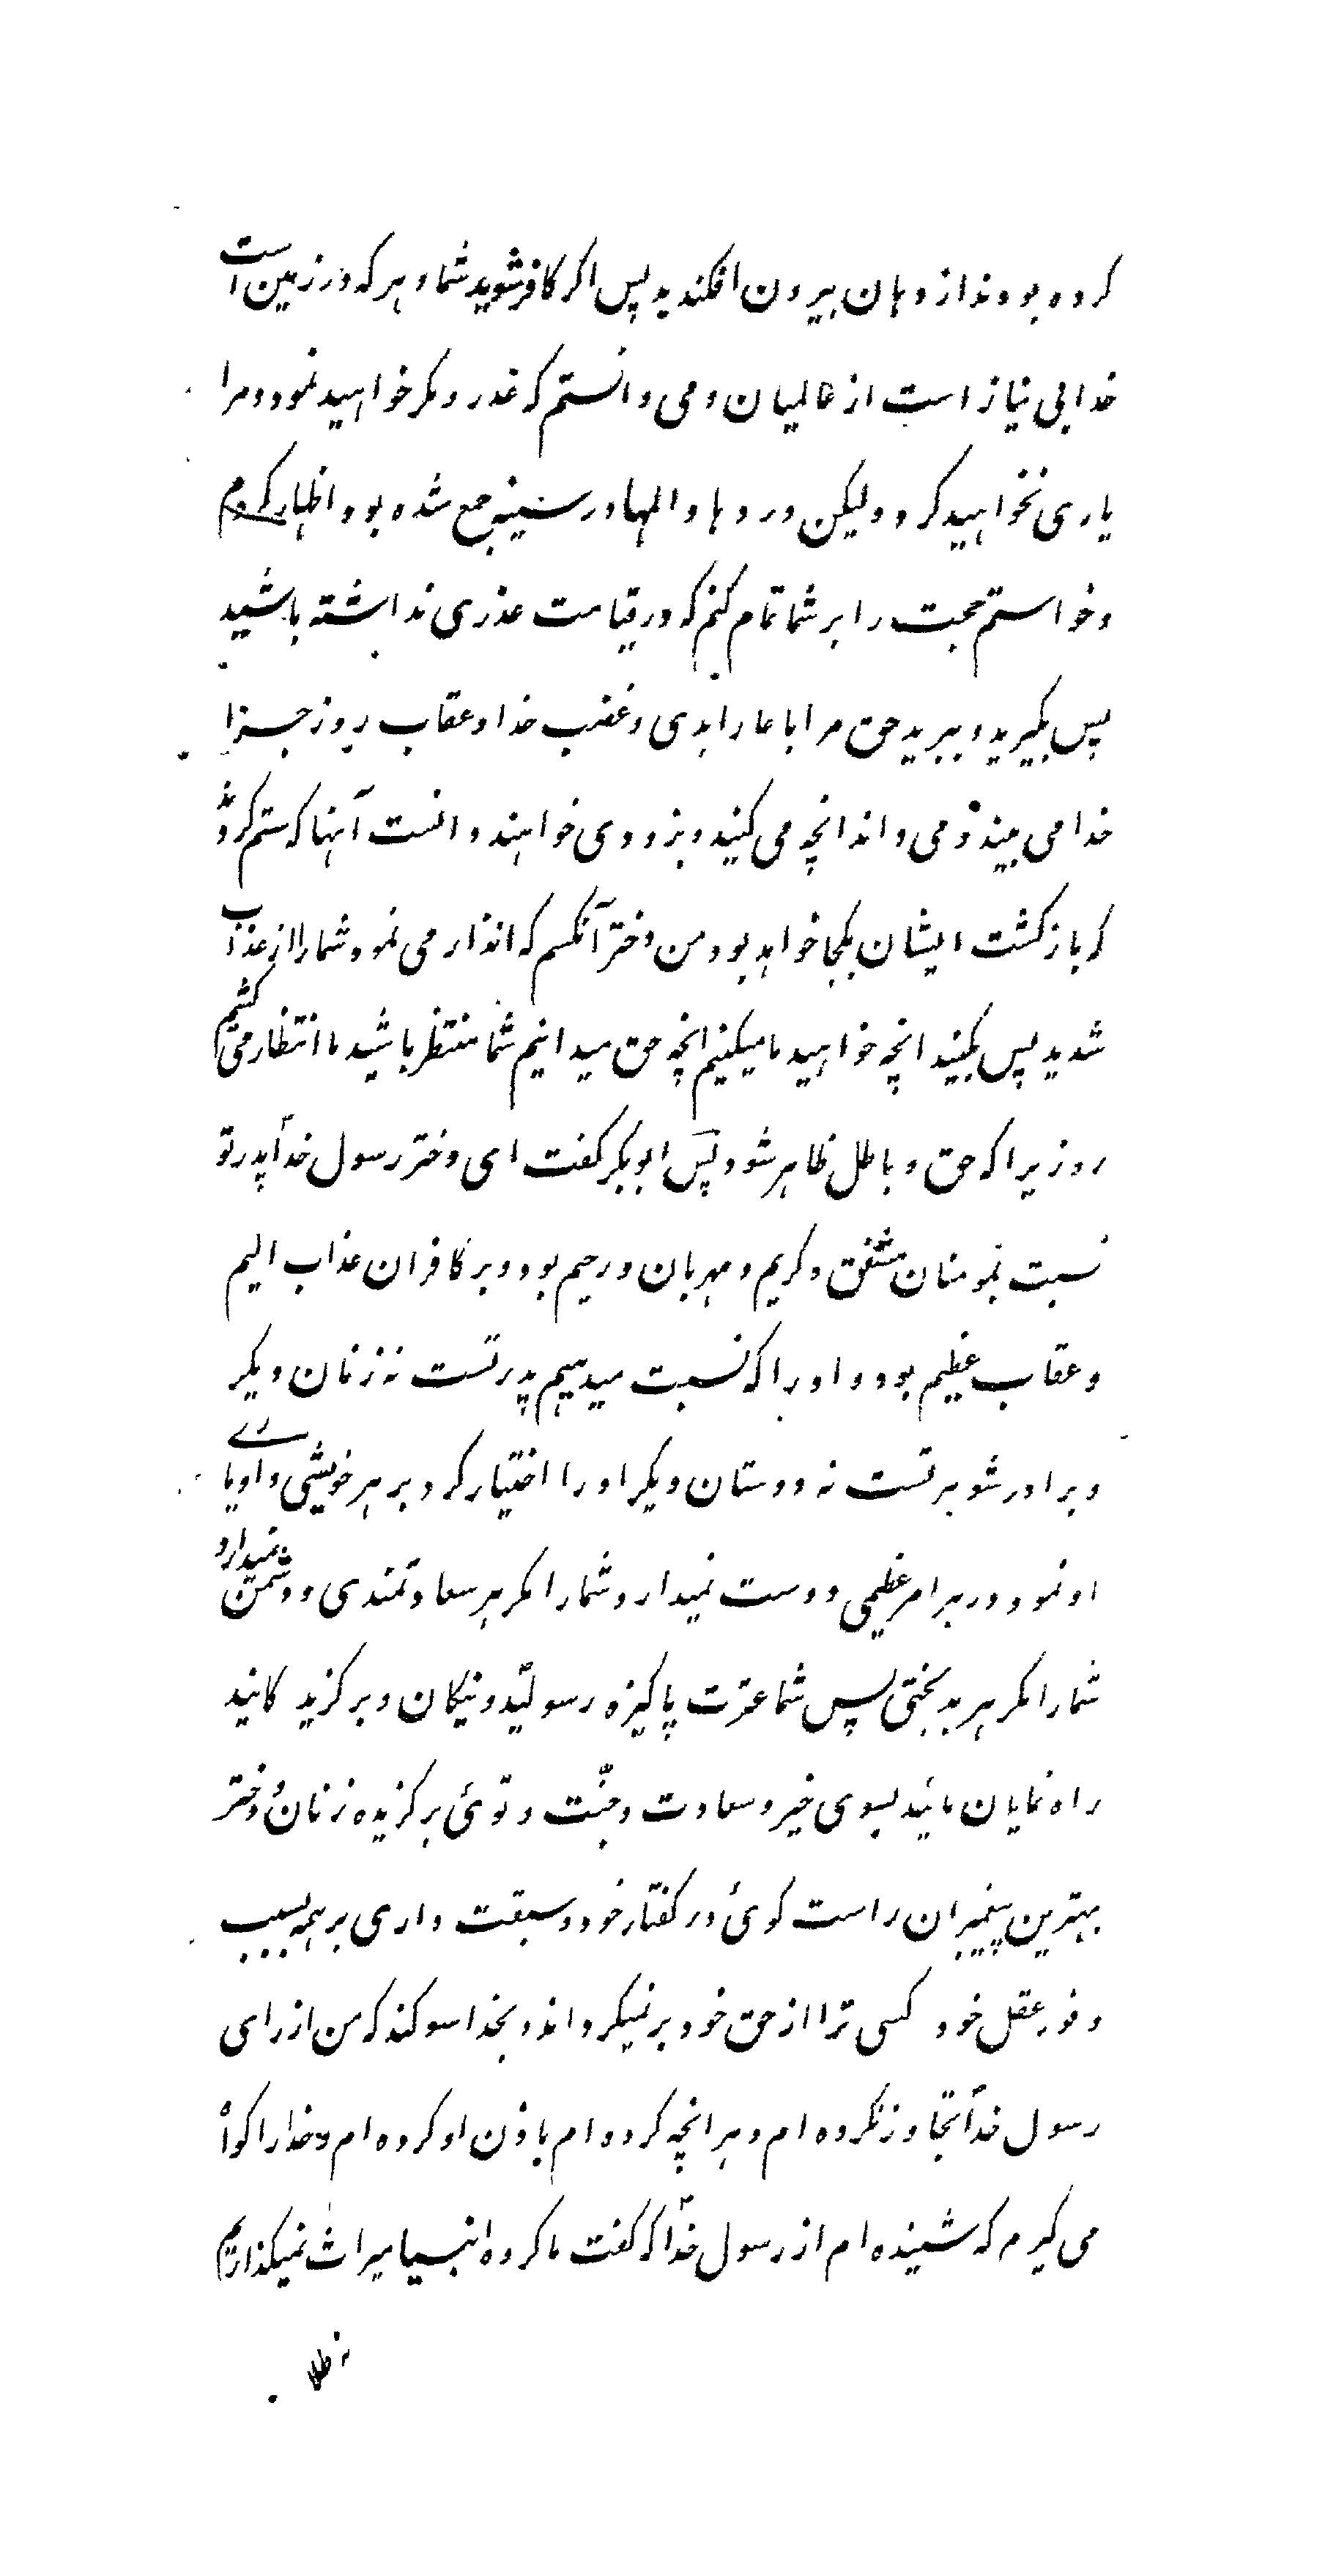 کرده بودند از دهان بیرون افکندید پس اکر کافر شوید شما و هر که در زمین است
خدا بی نیاز است از عالمیان و می دانستم که غدر و مکر خواهید نمود و مرا
یاری نخواهید کرد و لیکن دردها و المها در سینه جمع شده بود اظهار کردم
و خواستم حجت را بر شما تمام کنم که در قیامت عذری نداشته باشید
پس بکیرید و ببرید حق مرا با عار ابدی و غضب خدا و عقاب روز جزا
خدا می بیند و می داند انچه می کنید و بزودی خواهند دانست آنها که ستم کردند
که بازکشت ایشان بکجا خواهد بود من دختر آنکسم که انذار می نمود شما را از عذاب
شدید پس بکنید انچه خواهید ما میکنیم انچه حق میدانیم شما منتظر باشید ما انتظار می کشیم
روزیرا که حق و باطل ظاهر شود پس ابوبکر کفت ای دختر رسول خدا پدر تو
نسبت بمومنان مشفق و کریم و مهربان و رحیم بود و بر کافران عذاب الیم
و عقاب عظیم بود و او را که نسبت میدهیم پدر تست نه زنان دیکر
و برادر شوهر تست نه دوستان دیکر او را اختیار کرد بر هر خویشی و او یاری
او نمود در هر امر عظیمی دوست نمیدارد شما را مکر هر سعادتمندی و دشمن نمیدارد
شما را مکر هر بدبختی پس شما عترت پاکیزه رسولید و نیکان و برکزیدکانید
راه نمایان مائید بسوی خیر و سعادت و جنّت و توئی برکزیده زنان و دختر
بهترین پیغمبران راست کوئی در کفتار خود و سبقت داری بر همه بسبب
وفور عقل خود کسی ترا از حق خود برنمیکرداند و بخدا سوکند که من از رای
رسول خدا تجاوز نکرده ام و هر انچه کرده ام باذن او کرده ام و خدا را کواه
می کیرم که شنیده ام از رسول خدا که کفت ما کروه انبیا میراث نمیکذاریم
نه طلا